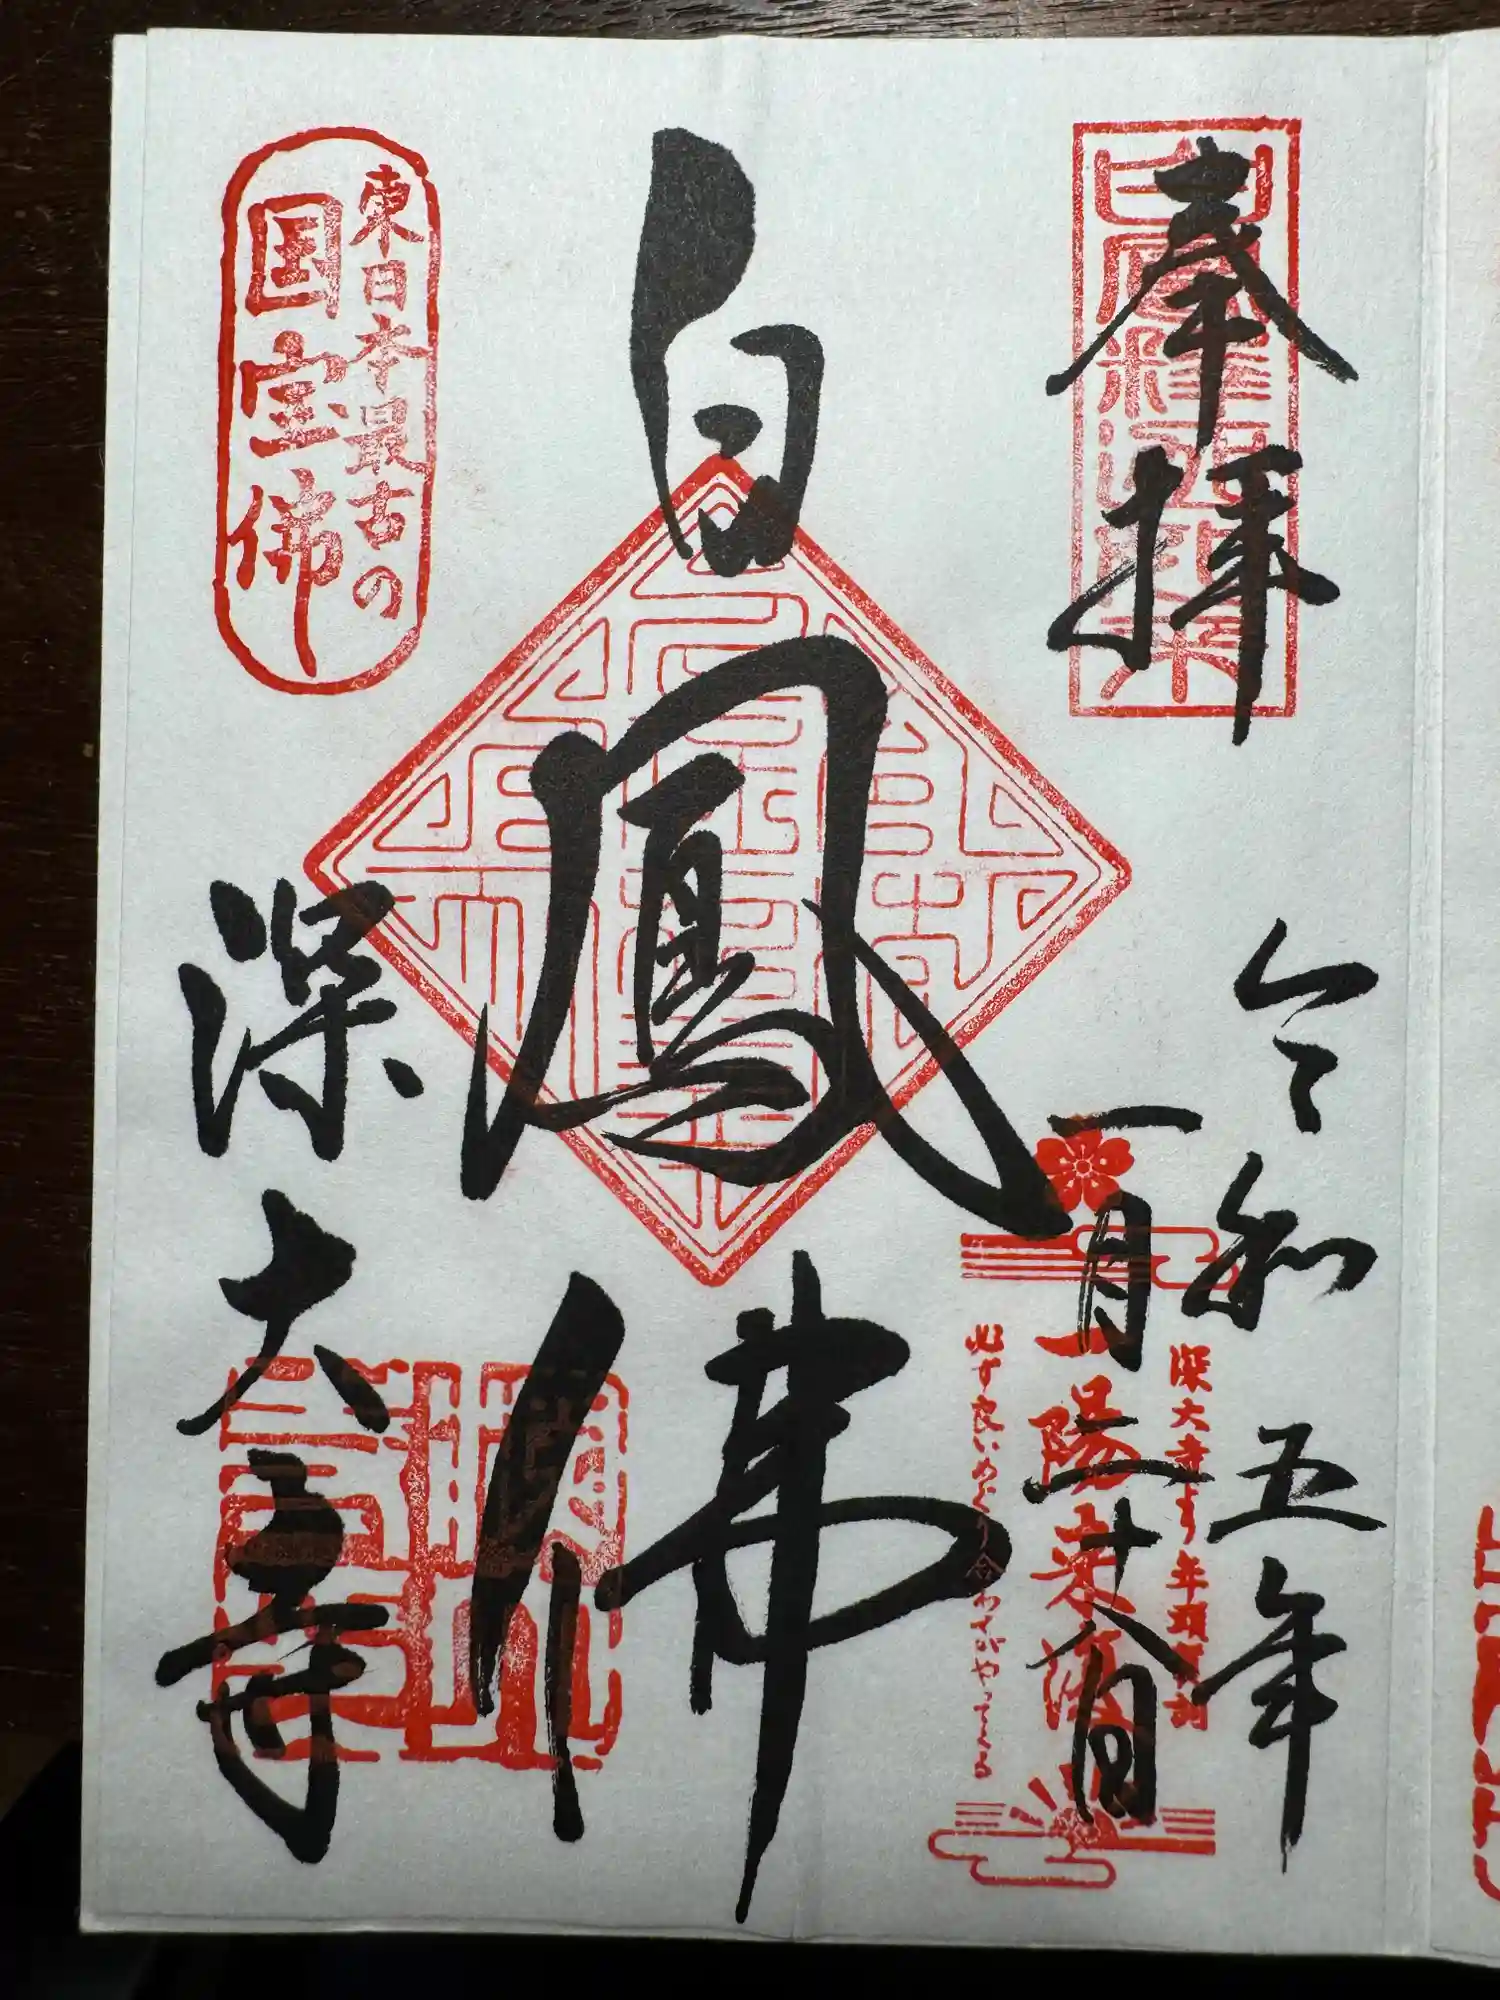 奉拝
令和五年
一月二十八日
深大寺より年頭
一陽来復
必ず良いめぐり合わせがやってくる
白鳳佛
東日本最古の
国宝佛
深大寺